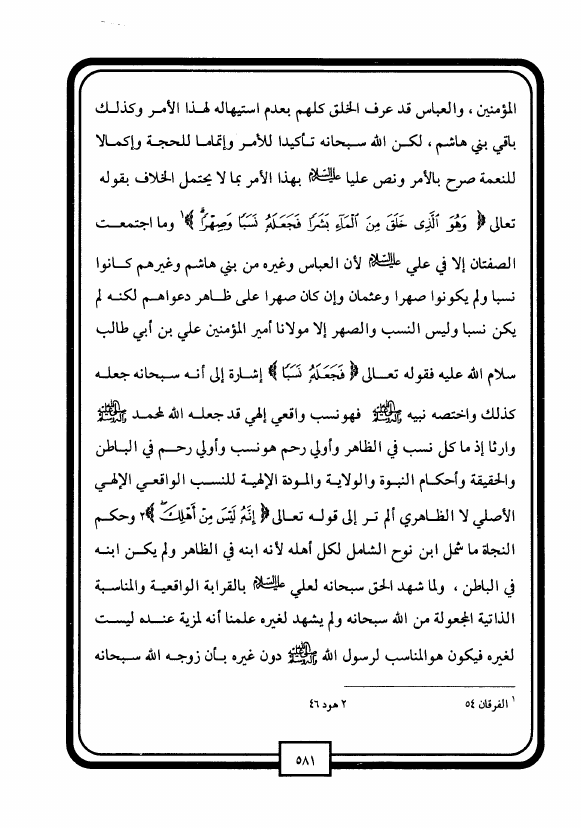 المؤمنين ، والعباس قد عرف الخلق كلهم بعدم استيهاله لهذا الأمر وكذلك
باقي بني هاشم ، لكن الله سبحانه تأكيدا للأمر وإتماما للحجة وإكمالا
للنعمة صرح بالأمر ونص عليا عليه السلام بهذا الأمر بما لا يحتمل الخلاف بقوله
تعالى ﴿ وَهُوَ الَّذِى خَلَقَ مِنَ الْمَاءِ بَشَرًا فَجَعَلَهُ نَسَبًا وَصِهْرًا ﴾¹ وما اجتمعت
الصفتان إلا في علي عليه السلام لأن العباس وغيره من بني هاشم وغيرهم كانوا
نسبا ولم يكونوا صهرا وعثمان وإن كان صهرا على ظاهر دعواهم لكنه لم
يكن نسبا وليس النسب والصهر إلا مولانا أمير المؤمنين علي بن أبي طالب
سلام الله عليه فقوله تعالى ﴿ فَجَعَلَهُ نَسَبًا ﴾ إشارة إلى أنه سبحانه جعله
كذلك واختصه نبيه صلى الله عليه وآله فهو نسب واقعي إلهي قد جعله الله لمحمد صلى الله عليه وآله
وارثا إذ ما كل نسب في الظاهر وأولي رحم هو نسب وأولي رحم في الباطن
والحقيقة وأحكام النبوة والولاية والمودة الإلهية للنسب الواقعي الإلهي
الأصلي لا الظاهري ألم تر إلى قوله تعالى ﴿ إِنَّهُ لَيْسَ مِنْ أَهْلِكَ ﴾٢ وحكم
النجاة ما شمل ابن نوح الشامل لكل أهله لأنه ابنه في الظاهر ولم يكن ابنه
في الباطن ، ولما شهد الحق سبحانه لعلي عليه السلام بالقرابة الواقعية والمناسبة
الذاتية المجعولة من الله سبحانه ولم يشهد لغيره علمنا أنه لمزية عنده ليست
لغيره فيكون هو المناسب لرسول الله صلى الله عليه وآله دون غيره بأن زوجه الله سبحانه
¹ الفرقان ٥٤ ٢ هود ٤٦
٥٨١